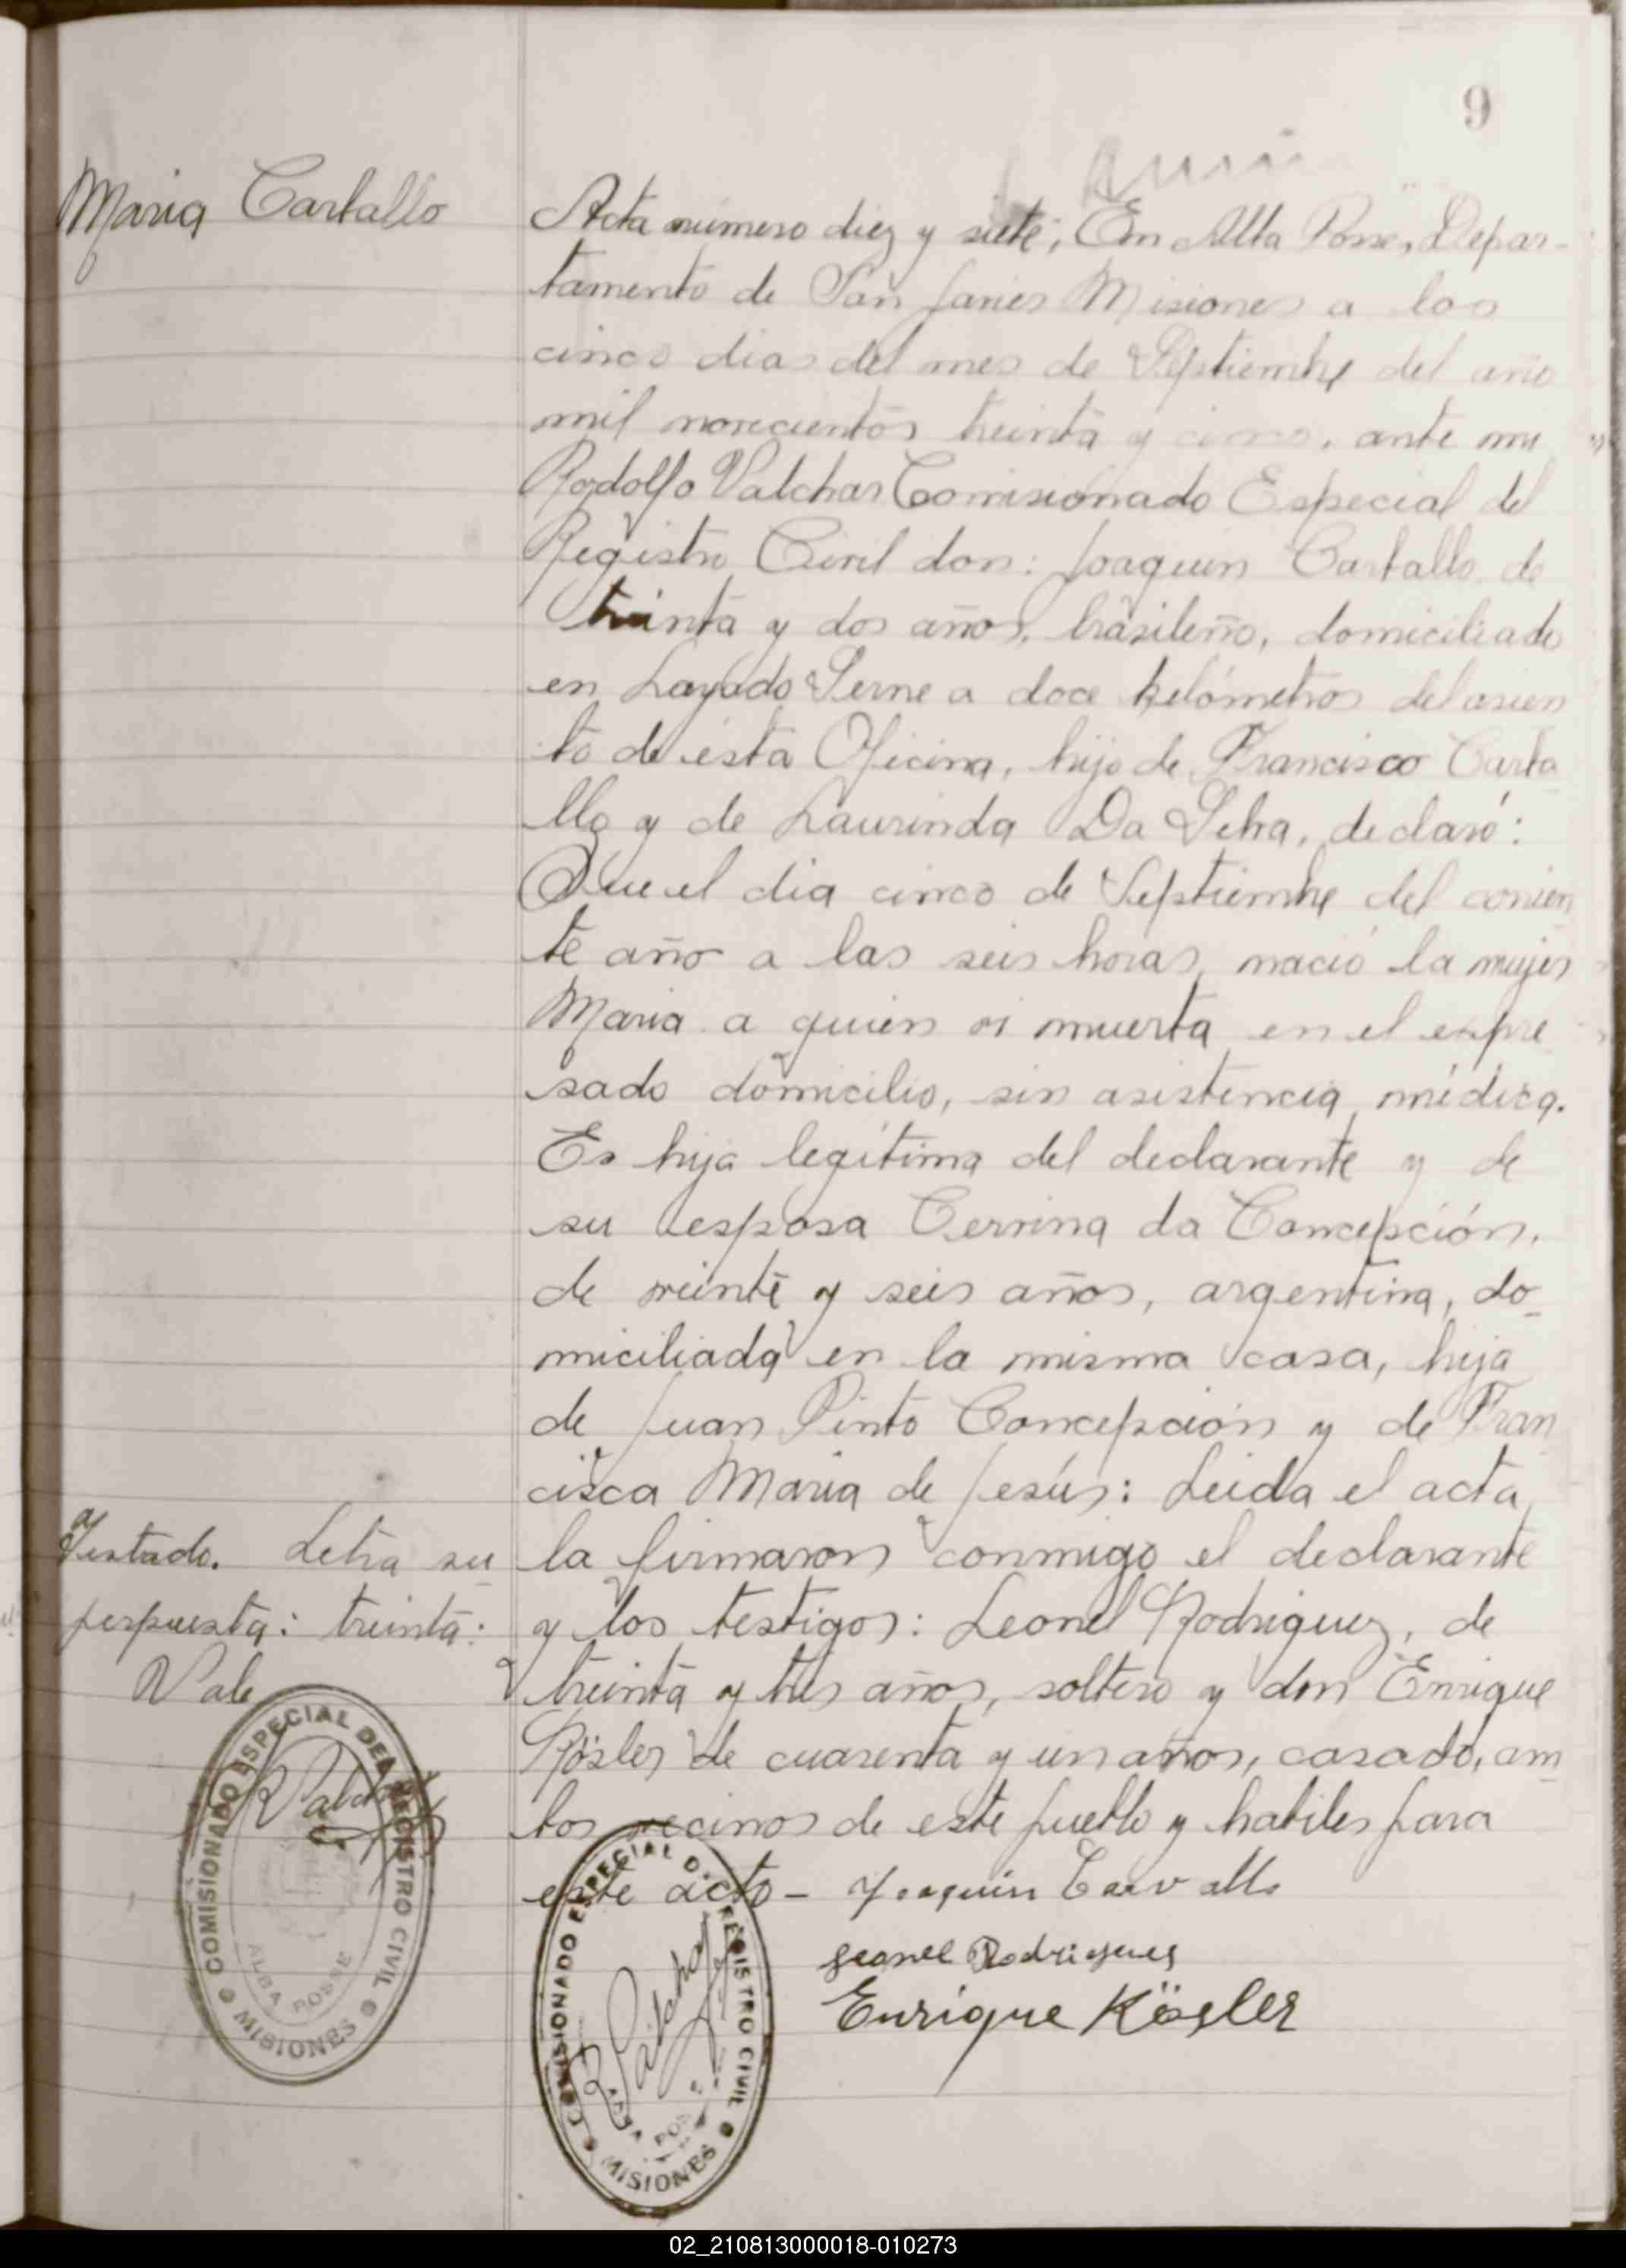 9
Maria Carballo
Acta número diez y siete; En Alba Posse, Depar-
tamento de San Javier Misiones a los
cinco dias del mes de Septiembre del año
mil novecientos treinta y cinco, ante mi
Rodolfo Valchar Comisionado Especial del
Registro Civil don: Joaquin Carballo de
treinta y dos años, brasileño, domiciliado
en Layado Serne a doce kelómetros del asien
to de ésta Oficina, hijo de Francisco Carba
llo y de Laurinda Da Selva, declaró:
Que el dia cinco de Septiembre del corrien
te año a las seis horas, nació la mujer
Maria a quien vi muerta en el expre
sado domicilio, sin asistencia médica.
Es hija legítima del declarante y de
su esposa Cerrina da Concepción,
de veinte y seis años, argentina, do-
miciliada en la misma casa, hija
de Juan Pinto Concepción y de Fran
cisca Maria de Jesús: Leida el acta,
la firmaron conmigo el declarante
y los testigos: Leonel Rodriguez, de
treinta y tres años, soltero y don Enrique
Kösler de cuarenta y un años, casado, am
bos vecinos de este pueblo y habiles para
este acto - Joaquin Carvallo
Leonel Rodrigues
Enrique Kösler
Testado. Letra su
perpuesta: treinta:
Vale
COMISIONADO ESPECIAL DEL REGISTRO CIVIL
R Valchar
ALBA POSSE
MISIONES
COMISIONADO ESPECIAL DEL REGISTRO CIVIL
R Valchar
ALBA POSSE
MISIONES
02_210813000018-010273